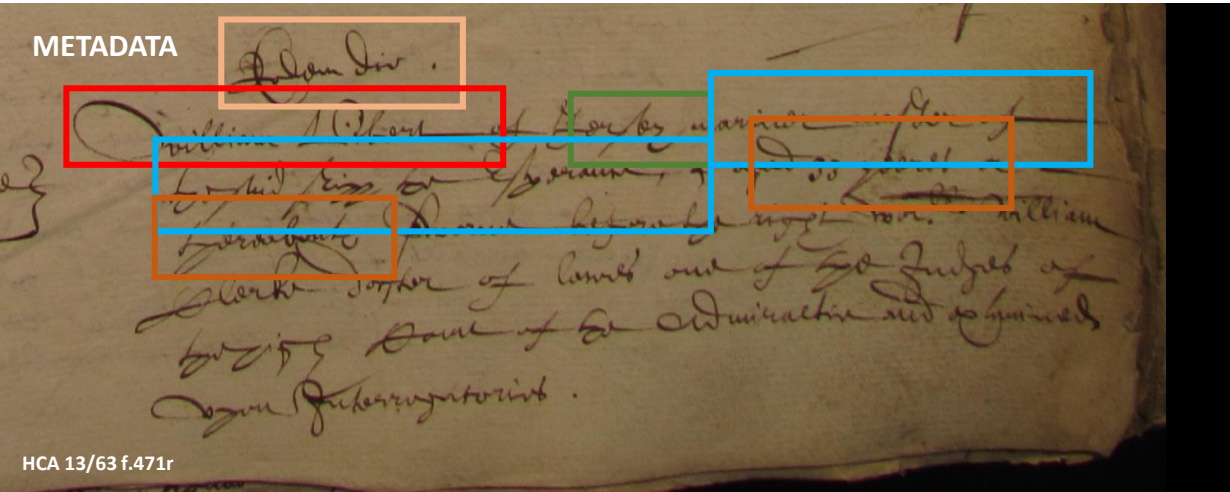 METADATA
Eodem die .
William of Jersey mariner master of
the said ship the Esperance, aged 30 yeares or
thereabouts sworne before the right wor:ll William
Clerke Doctor of lawes one of the Judges of
the high Court of the Admiraltie and examined
upon Interrogatories .
HCA 13/63 f.471r